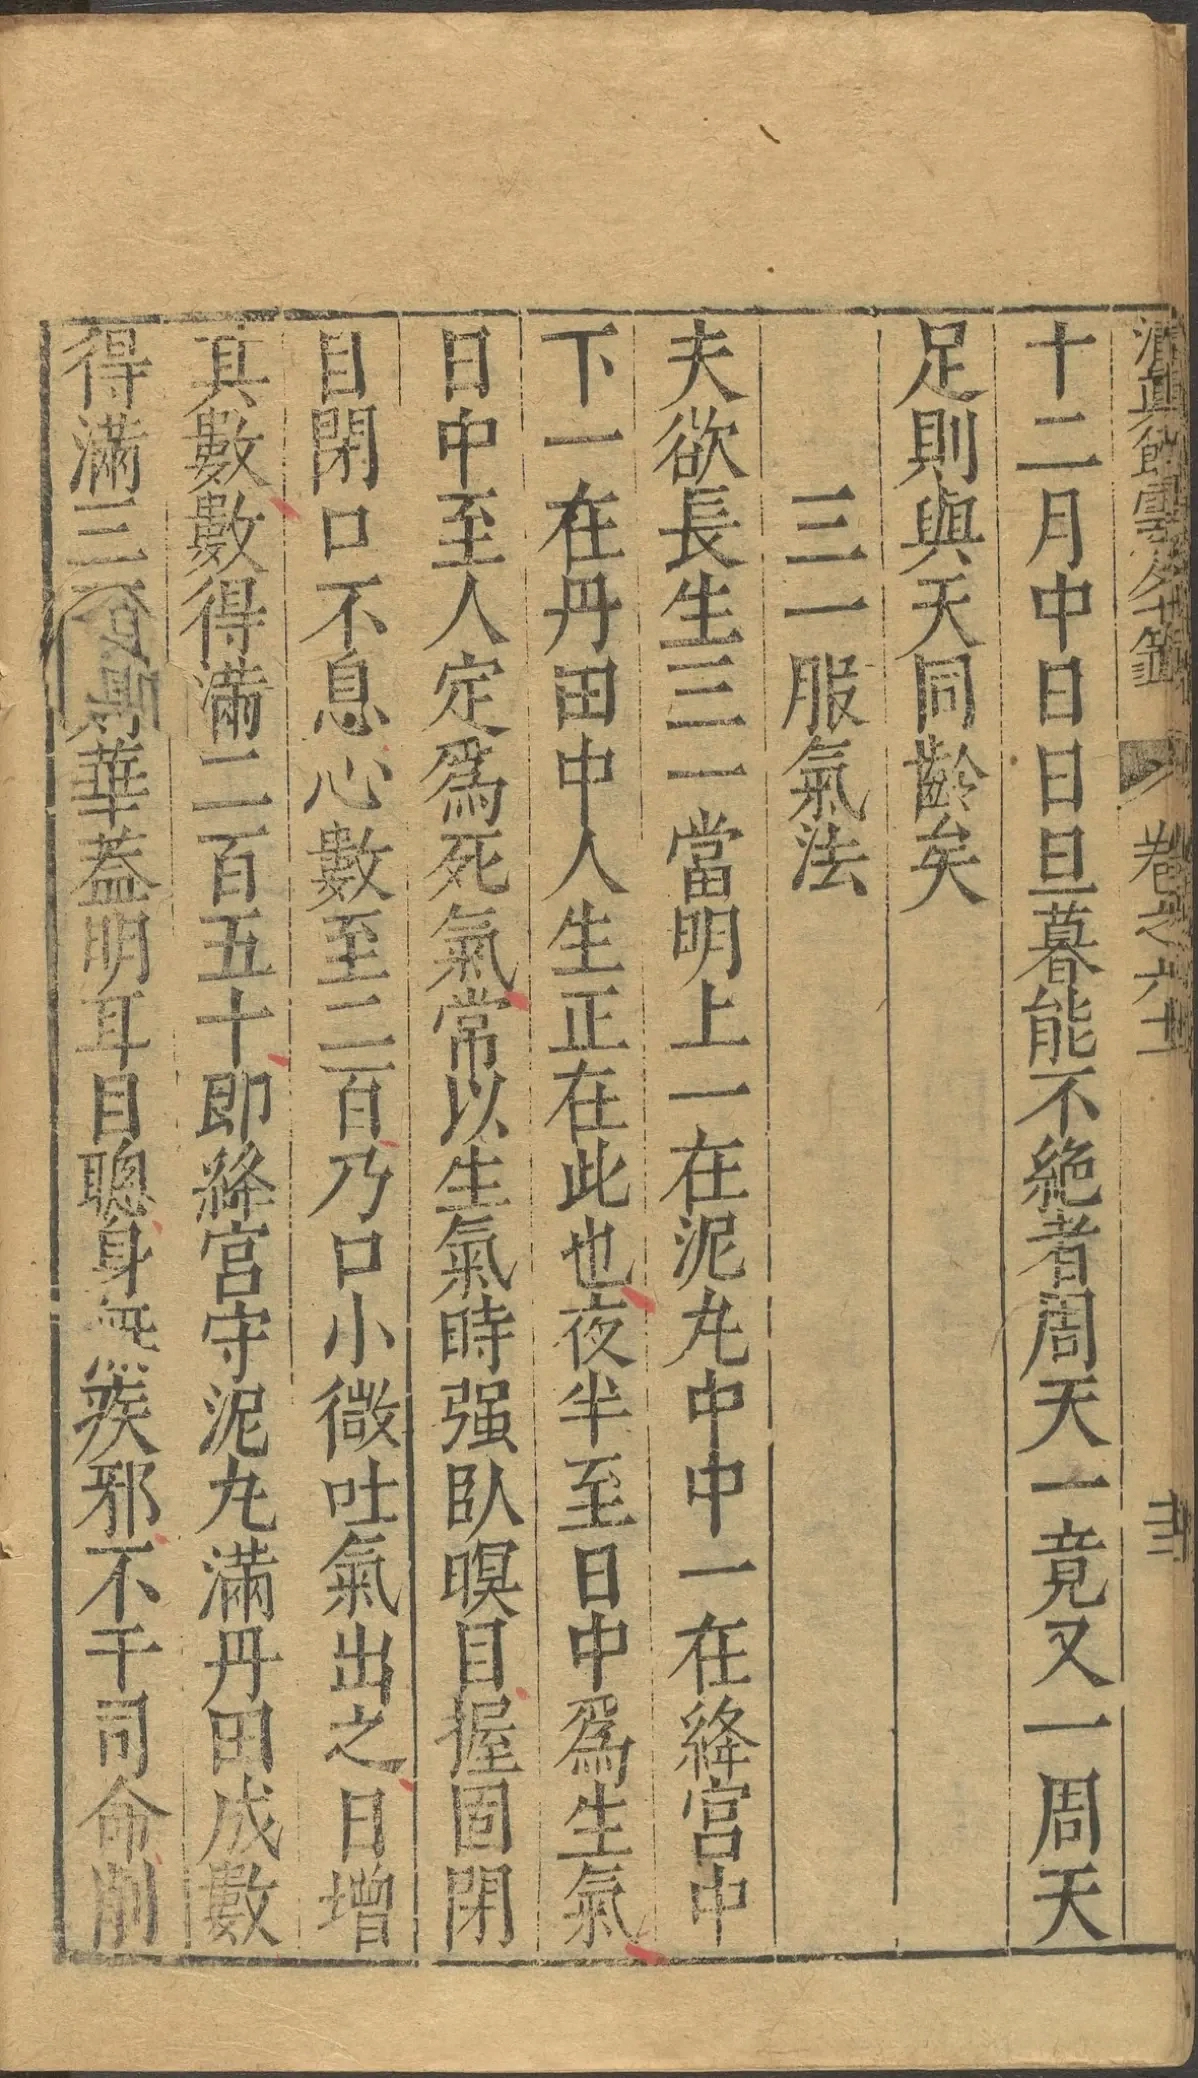 清真館雲笈七籤 卷之六十一
十二月中日日旦暮能不絶者周天一竟又一周天
足則與天同齡矣
三一服氣法
夫欲長生三一當明上一在泥丸中中一在絳宮中
下一在丹田中人生正在此也夜半至日中爲生氣
日中至人定爲死氣常以生氣時强臥瞑目握固閉
目閉口不息心數至二百乃口小微吐氣出之日增
其數數得滿二百五十即絳宮守泥丸滿丹田成數
得滿三百則華蓋明耳目聰身無疾邪不干司命削